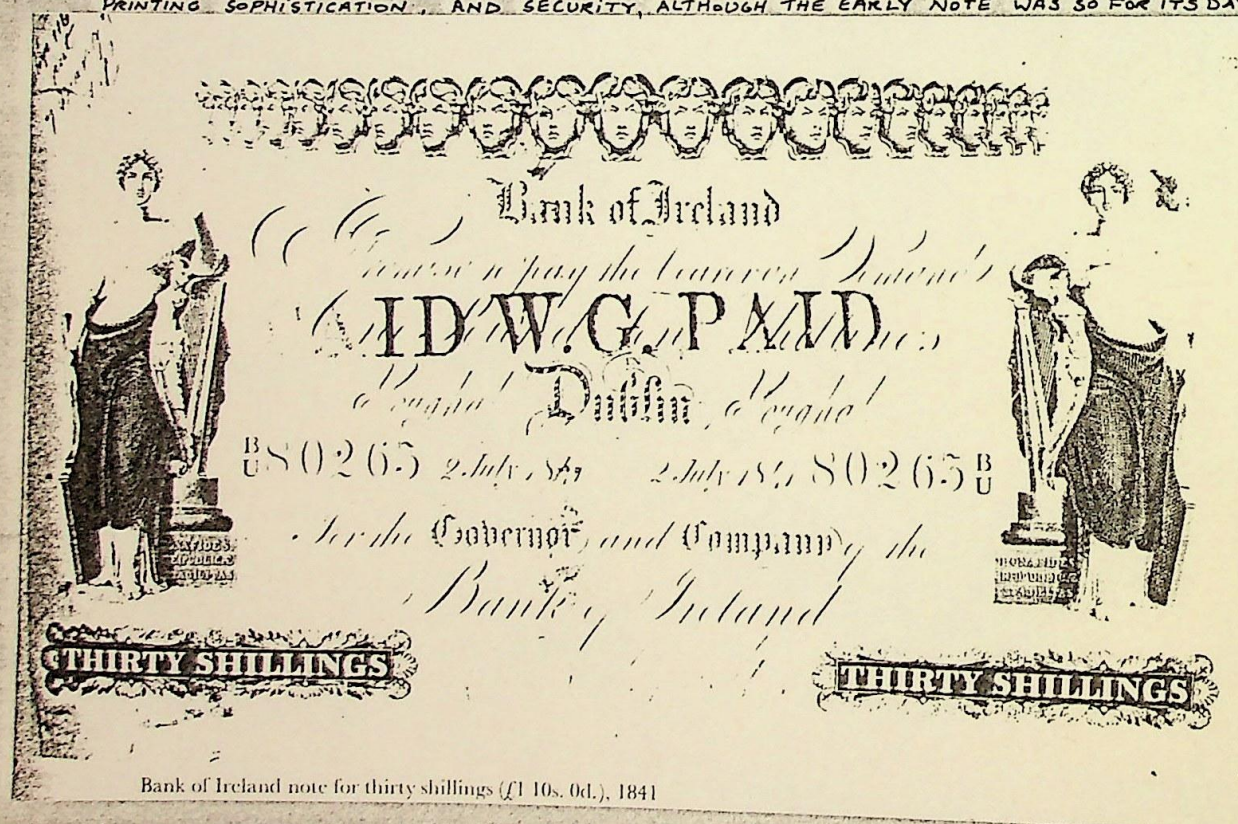 PRINTING SOPHISTICATION, AND SECURITY, ALTHOUGH THE EARLY NOTE WAS SO FOR ITS DA
Bank of Ireland
pay the bearer on Demand
ID W.G. PAID
Dublin
B U 80265 2 July 2 July 80265 B U
For the Governor and Company of the
Bank of Ireland
BONA FIDES
REIPUBLICÆ
STABILITAS
THIRTY SHILLINGS THIRTY SHILLINGS
Bank of Ireland note for thirty shillings (£1 10s. 0d.), 1841